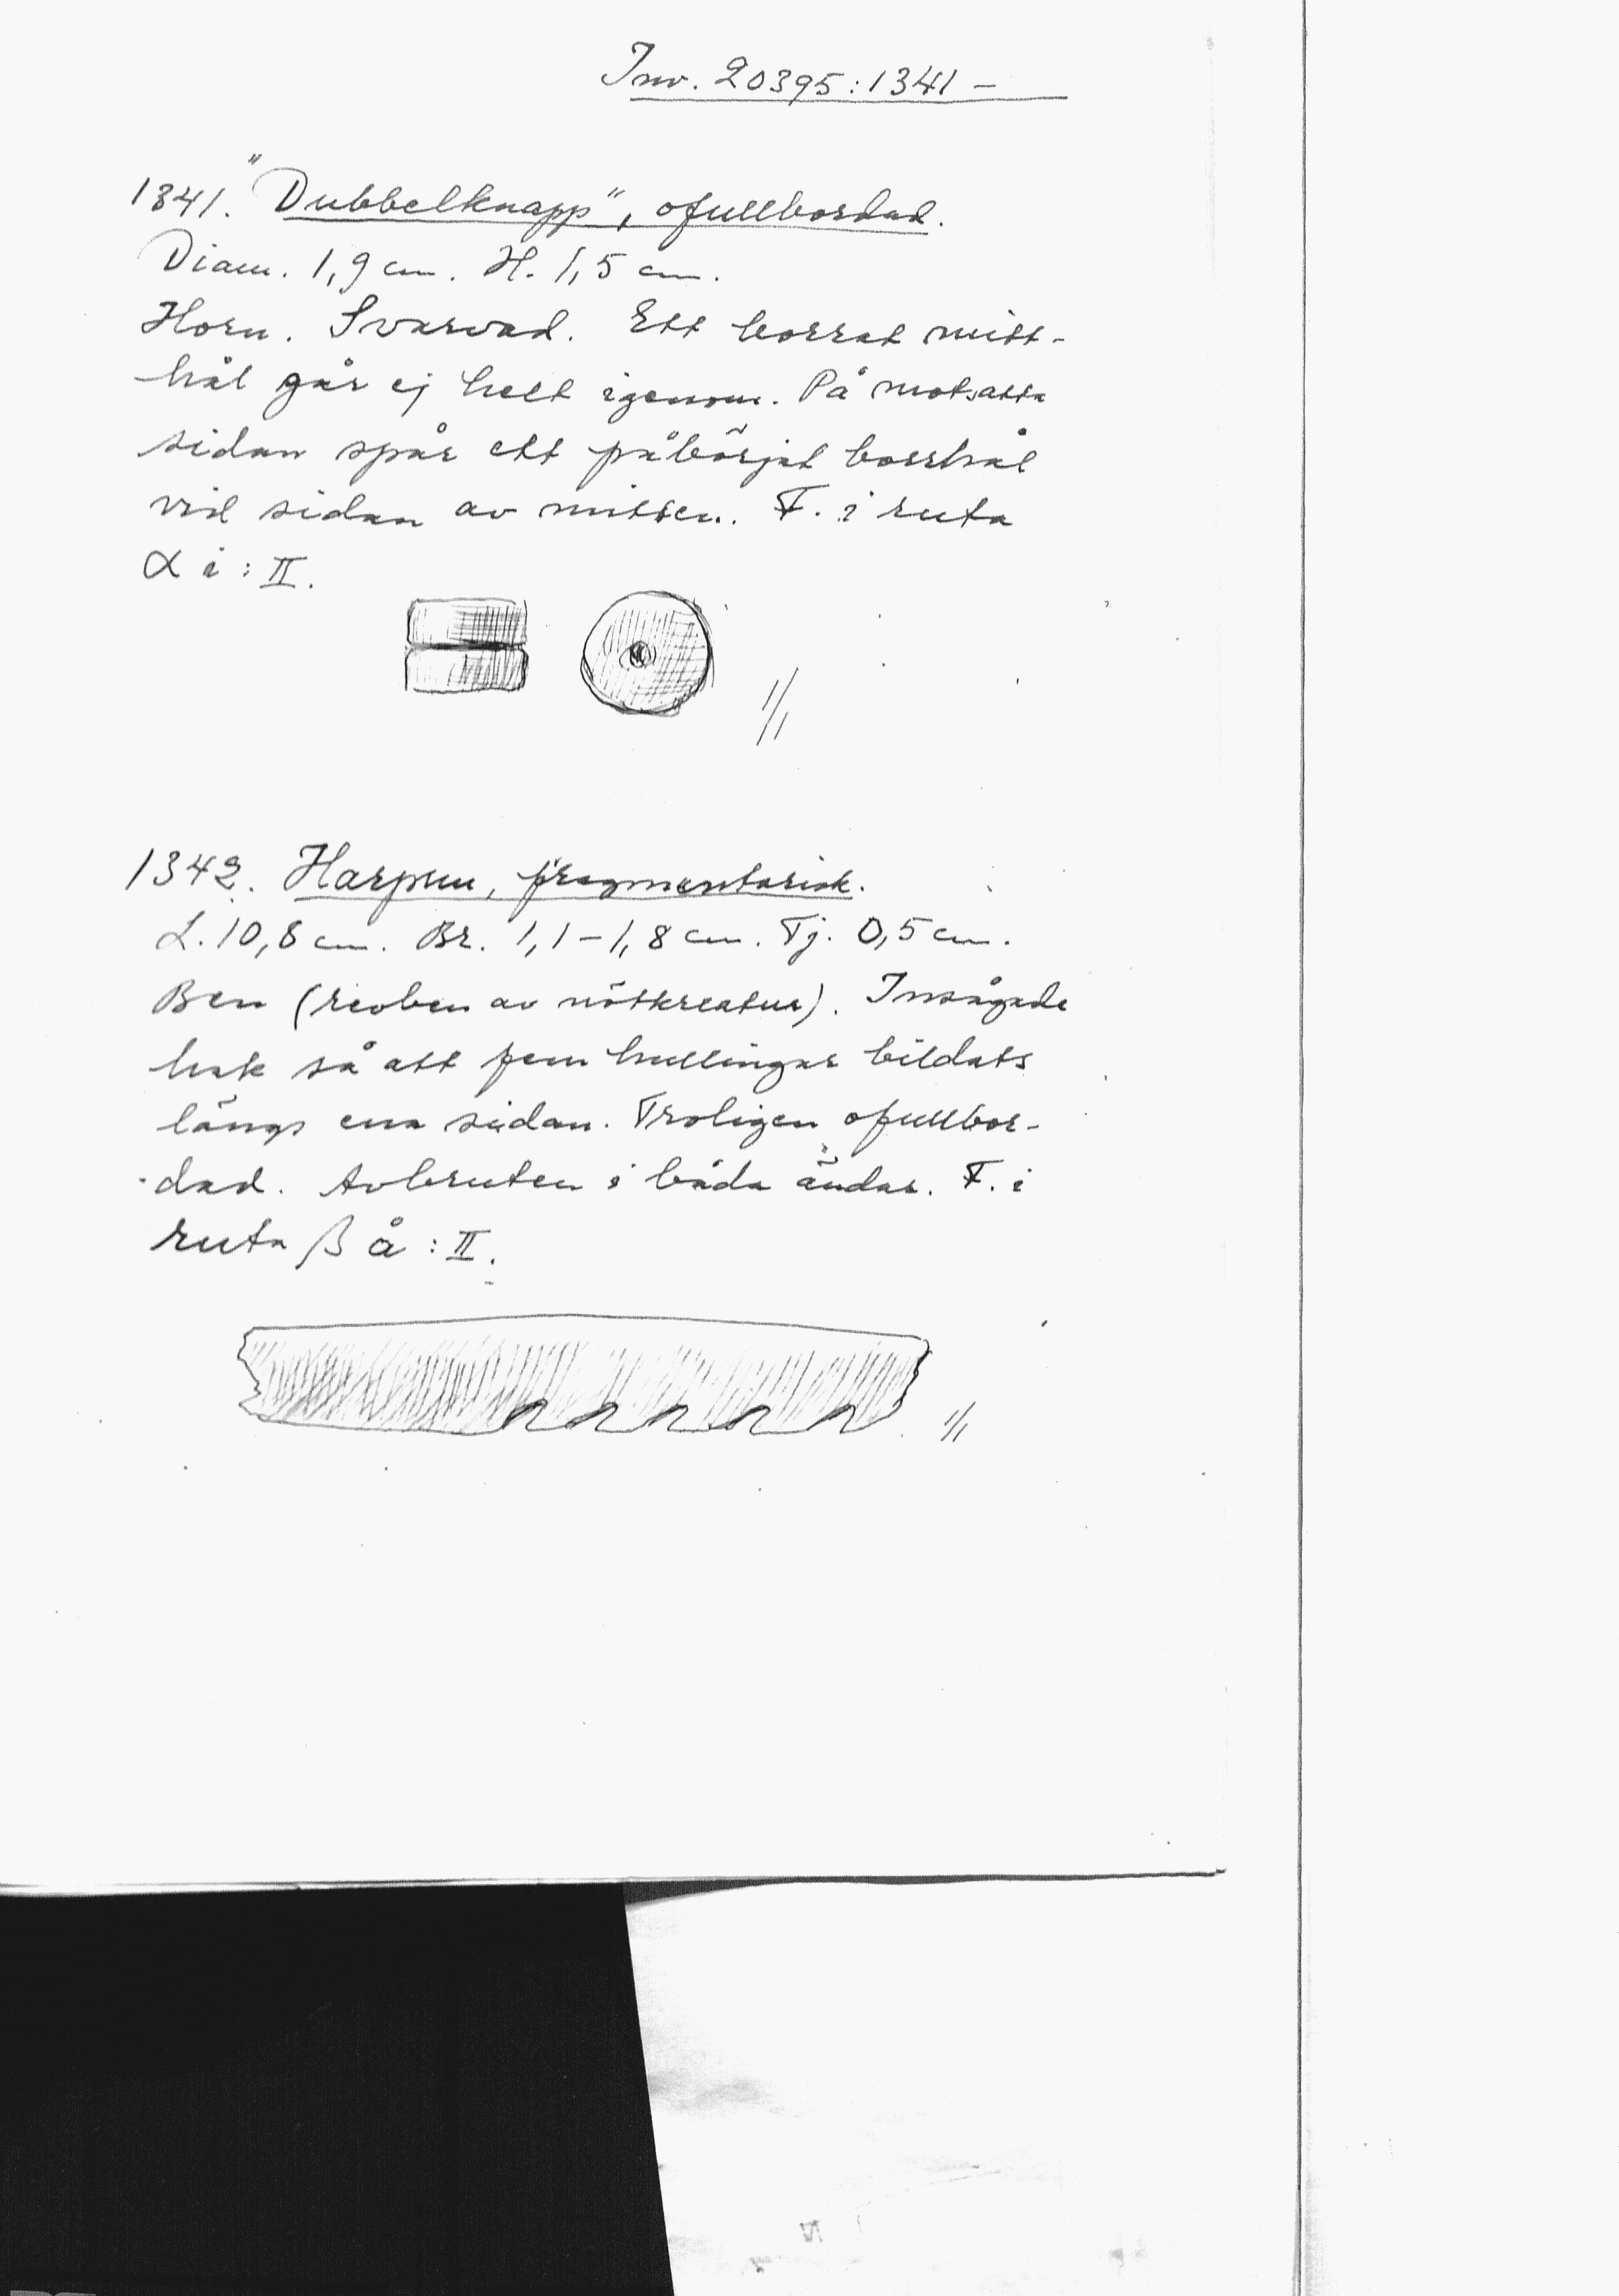 Inv. 20395:1341 –
1341. "Dubbelknapp", ofullbordad.
Diam. 1,9 cm. H. 1,5 cm.
Horn. Svarvad. Ett borrat mitt-
hål går ej helt igenom. På motsatta
sidan spår ett påbörjat borrhål
vid sidan av mitten. F. i ruta
α i : II.
1/1
1342. Harpun, fragmentarisk.
L. 10,8 cm. Br. 1,1–1,8 cm. Tj. 0,5 cm.
Ben (revben av nötkreatur). Insågade
hak så att fem hullingar bildats
längs ena sidan. Troligen ofullbor-
dad. Avbruten i båda ändar. F. i
ruta β å : II.
1/1